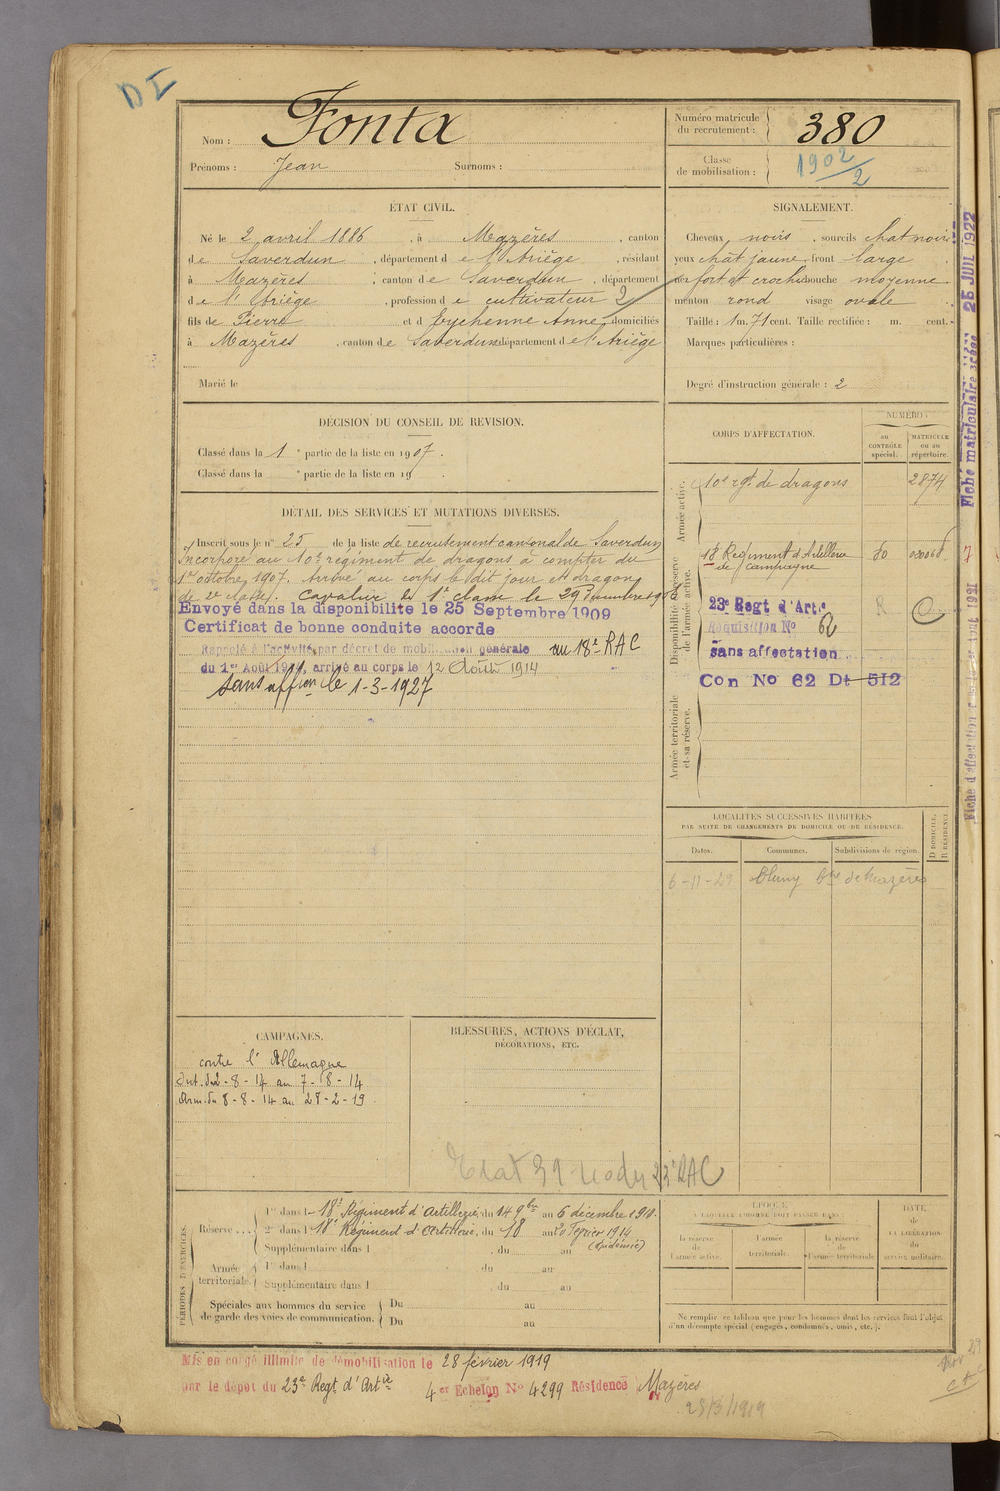 D I
Nom : Fonta
Prénoms : Jean Surnoms :
Numéro matricule du recrutement : 380
Classe de mobilisation : 1902/2
ÉTAT CIVIL.
Né le 2 avril 1886, à Mazères, canton
de Saverdun, département de l'Ariège, résidant
à Mazères, canton de Saverdun, département
de l'Ariège, profession de cultivateur 2
fils de Pierre et d'Eychenne Anne, domiciliés
à Mazères, canton de Saverdun, département de l'Ariège
Marié le
SIGNALEMENT.
Cheveux noirs, sourcils chat noirs
yeux chat jaune, front large
nez fort et crochu, bouche moyenne
menton rond visage ovale
Taille : 1 m. 71 cent. Taille rectifiée : m. cent.
Marques particulières :
Degré d'instruction générale : 2
DÉCISION DU CONSEIL DE REVISION.
Classé dans la 1e partie de la liste en 1907.
Classé dans la e partie de la liste en 19 .
DÉTAIL DES SERVICES ET MUTATIONS DIVERSES.
Inscrit sous le n° 25 de la liste de recrutement cantonal de Saverdun
Incorporé au 10e régiment de dragons à compter du
1er octobre 1907. Arrivé au corps le dit jour et dragon
de 2e classe. Cavalier de 1e classe le 29 19
Envoyé dans la disponibilite le 25 Septembre 1909
Certificat de bonne conduite accorde
Rappelé à l'activité par décret de mobilisation générale au 18e RAC
du 1er Août 1914, arrivé au corps le 12 Août 1914
Sans affon le 1-3-1927
CORPS D'AFFECTATION.
NUMÉRO :
au CONTRÔLE spécial.
MATRICULE ou au répertoire.
Armée active.
10e rgt de dragons 2874
Disponibilité et réserve de l'armée active.
18e Régiment d'Artillerie de campagne 80
23e Regt d'Art.
Réquisition No 62
sans affectation
Con No 62 Dt 512
Armée territoriale et sa réserve.
LOCALITÉS SUCCESSIVES HABITÉES
PAR SUITE DE CHANGEMENTS DE DOMICILE OU DE RÉSIDENCE.
Dates. Communes. Subdivisions de région. D DOMICILE, R RÉSIDENCE.
6-11-29 de Mazères
CAMPAGNES.
contre l'Allemagne
Int. du 2-8-14 au 7-8-14
Arm. du 8-8-14 au 28-2-19
BLESSURES, ACTIONS D'ÉCLAT,
DÉCORATIONS, ETC.
23e RAC
PÉRIODES D'EXERCICES.
Réserve ... 1re dans l 18e Régiment d'Artillerie, du 14 9bre au 6 décembre 1910.
2e dans l 18e Régiment d'Artillerie, du 18 au Février 1914
Supplémentaire dans l , du au (épidémie)
Armée territoriale. 1re dans l , du au
Supplémentaire dans l , du au
Spéciales aux hommes du service de garde des voies de communication. Du au
Du au
ÉPOQUE
À LAQUELLE L'HOMME DOIT PASSER DANS :
la réserve de l'armée active.
l'armée territoriale.
la réserve de l'armée territoriale
DATE de LA LIBÉRATION du service militaire.
Ne remplir ce tableau que pour les hommes dont les services font l'objet
d'un décompte spécial (engagés, condamnés, omis, etc.).
Mis en congé illimité de démobilisation le 28 février 1919
par le dépot du 23e Regt d'Artie 4er Echelon No 4299 Résidence Mazères
Fiche matriculaire 25 JUIL 1922
Fiche d'affectation 1921